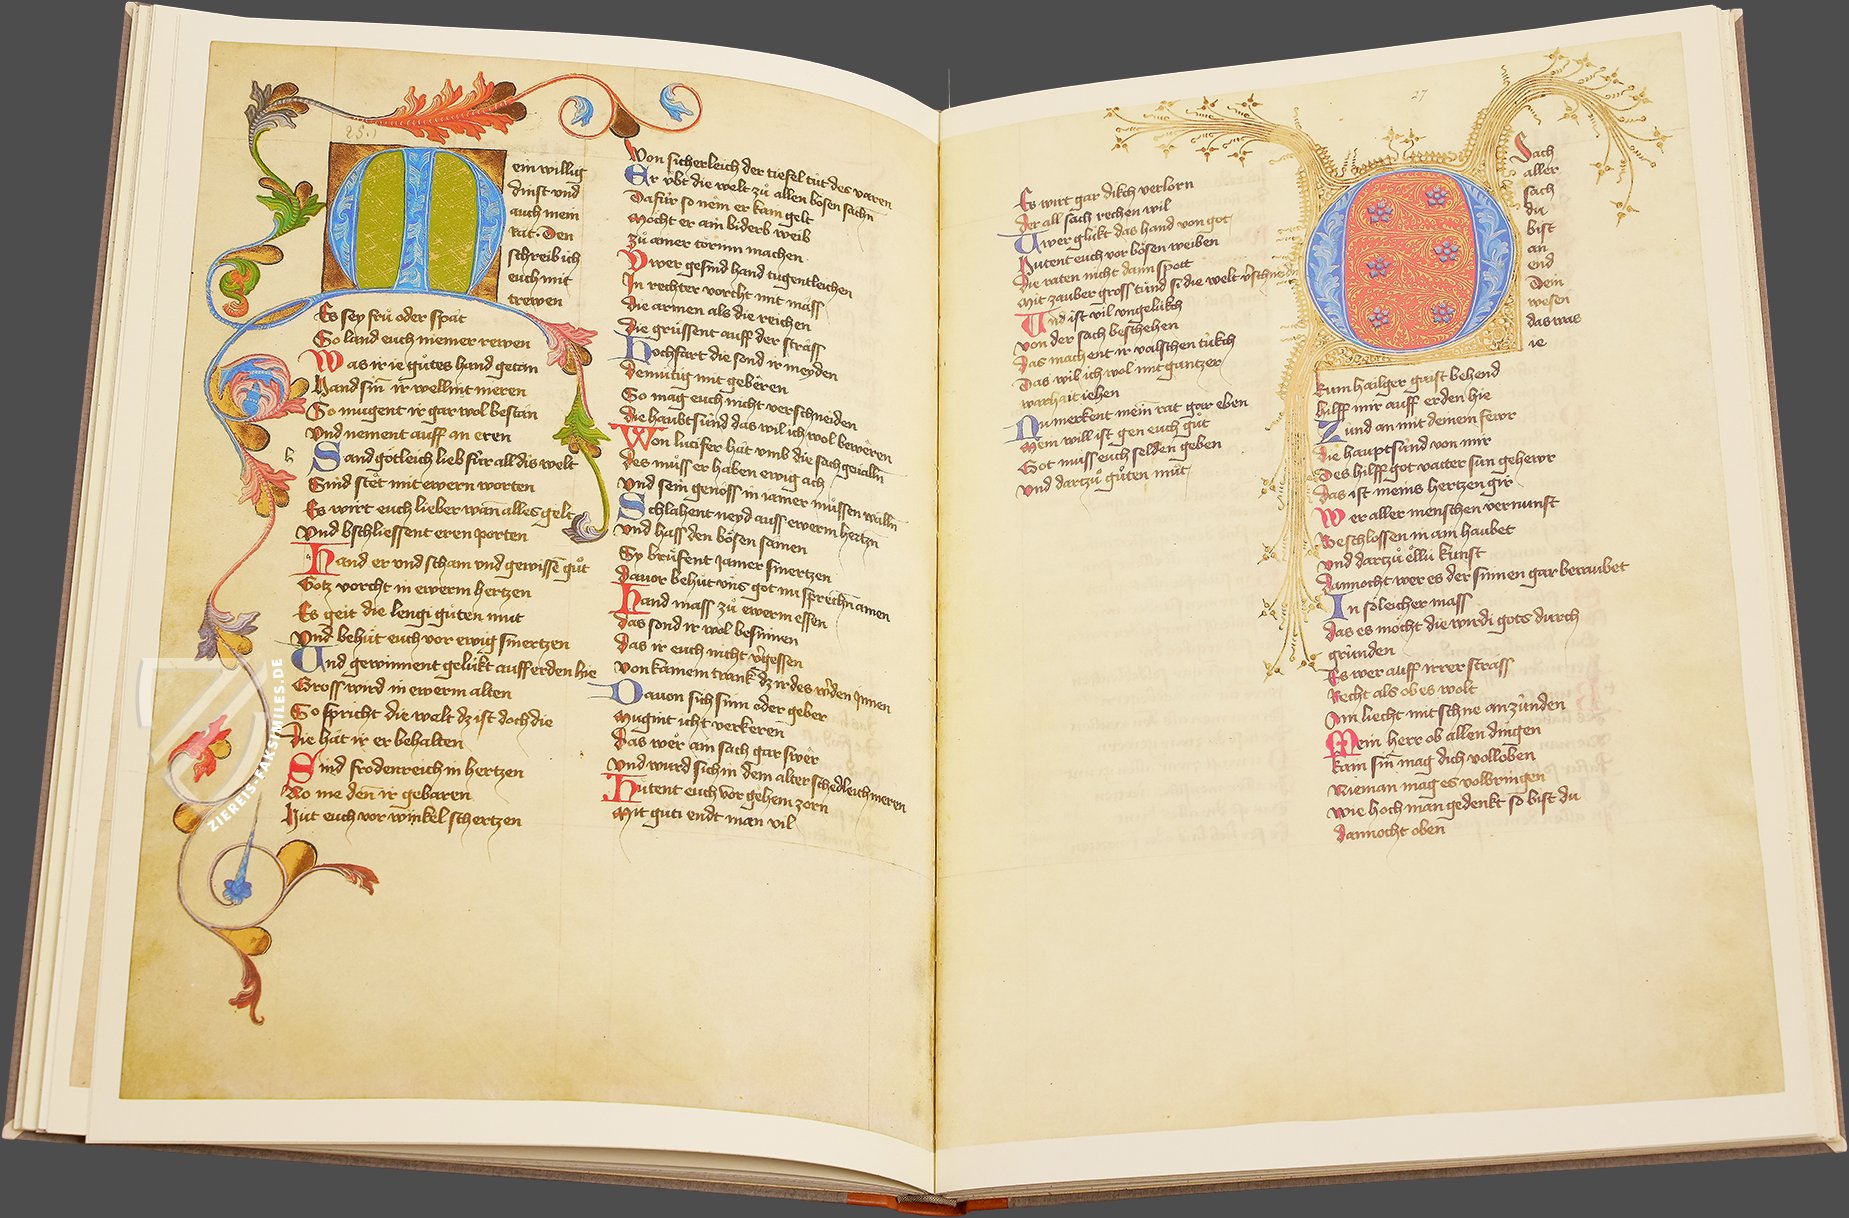 M
ein willig
dinst vnd
auch mein
rat. Den
schreib ich
euch mit
trewen
Es sey frů oder spat
So land euch niemer rewen
Was ir ie gůtes hand getan
Hand sin̄ ir wellint meren
So mugent ir gar wol bestan
Vnd nement auff an eren
Sand gotleich lieb für all dis welt
Sind stet mit ewern worten
Es wirt euch lieber wan̄ alles gelt
Vnd bschliessent eren porten
Hand er vnd scham vnd gewissen̄ gůt
Gotz vorcht in ewerm hertzen
Es geit die lengi gůten mut
Vnd behüt euch vor ewig smertzen
Und gewinnent gelükt auff erden hie
Gross wird in ewerm alten
So spricht die welt dz ist doch die
Die hat ir er behalten
Sind frödenreich in hertzen
Wo me den̄ ir gebaren
Hüt euch vor winkel schertzen
Won sicherleich der tiefel tüt des varen
Er übt die welt zů allen bösen sachn̄
Dafür so nem er kam gelt
Möcht er ain biderb weib
Zů ainer törinn machen
Vwer gesind hand tugentleichen
In rechter vorcht mit mass
Die armen als die reichen
Die grüssent auff der strass
Hochfart die sond ir meyden
Demütig mit geberen
So mag euch nicht verschneiden
Die haubtsünd das wil ich wol beweren
Won lucifer hat vmb die sach geualln̄
Des můss er haben ewig ach
Vnd sein genoss in iamer můssen walln̄
Schlahent neyd auss ewerm hertzn̄
Vnd hass den bösen samen
Sy brüfent iamer smertzen
Dauor behüt vns got nu sprechn̄ amen
Hand mass zů ewerm essen
Das sond ir wol besinnen
Das ir euch nicht v̄gessen
Von kainem trank dz ir des w̄den jnnen
Dauon sich sinn oder geber
Mugint icht verkeren
Das wer ain sach gar swer
Vnd wurd sich in dem alter schedleich meren
Hütent euch vor gehem zorn
Mit güti endt man vil
27
Es wirt gar dikch verlorn
Der all sach rechen wil
Uwer glükt das hand von got
Hutent euch vor bösen weiben
Die raten nicht dann spott
Mit zauber gross sünd si die welt v̄schneidn̄
Und ist vil vnglükch
Von der sach beschehen
Das machent ir valschen tükch
Das wil ich wol mit gantzer
warhait iehen
Nu merkent mein̄ rat gar eben
Mein will ist gen euch gůt
Got muss euch selden geben
Vnd dartzů gůten můt
Sach
aller
sach
du
bist
an
end
Dein
wesen
das was
ie
kum hailger gaist behend
hilff mir auff erden hie
Zund an mit deinem fewr
Die hauptsünd von mir
Des hilff got vatter sun gehewr
Das ist meins hertzen gir
Wer aller menschen vernunft
Beschlossen in aim haubet
Vnd dartzů elliu kunst
Dannocht wer es der sinnen gar beraubet
In söleicher mass
Das es möcht die wirdi gots durch
gründen
Es wer auff irrer strass
Recht als ob es wolt
Ain liecht mit schne anzünden
Mein herr ob allen dingen
Kain sin̄ mag dich volloben
Nieman mag es volbringen
Wie hoch man gedenkt so bist du
Dannocht oben
ZIEREIS-FAKSIMILES.DE